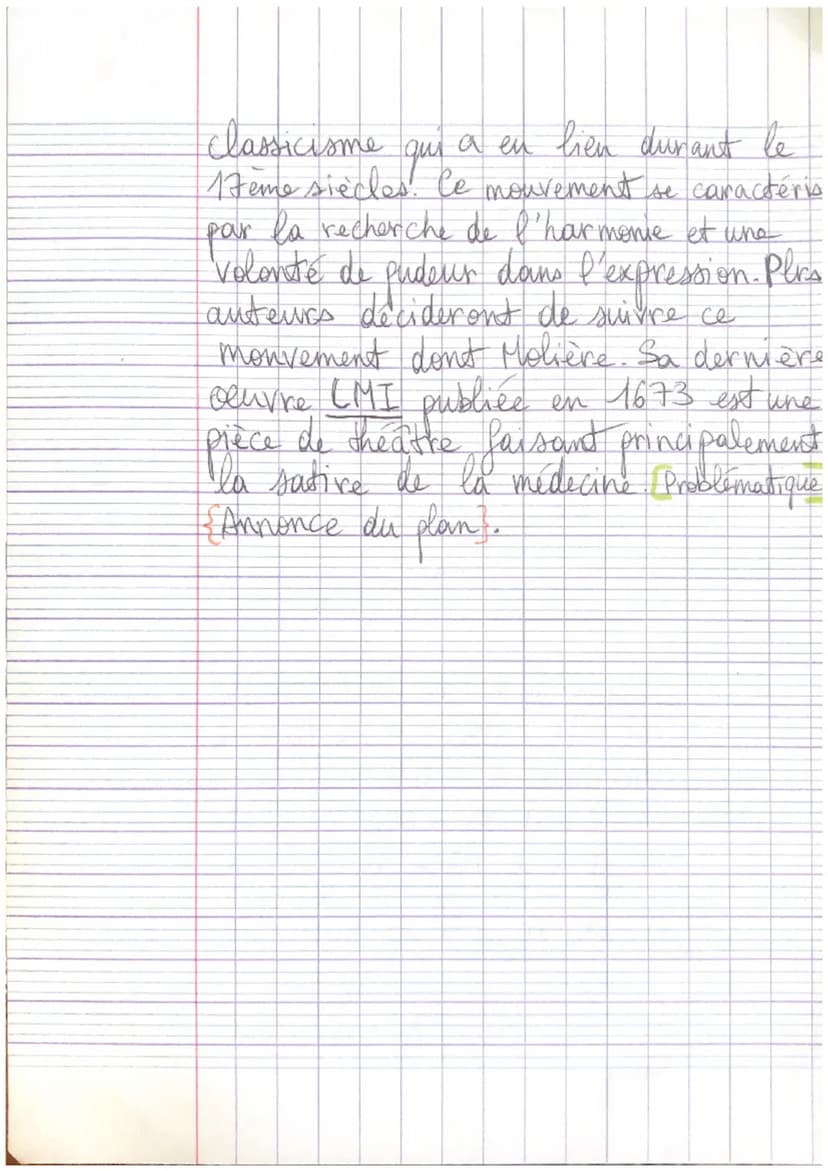 classicisme qui a eu lieu durant le
17ème siècles. Ce mouvement se caractéris
par la recherche de l'harmonie et une
volonté de pudeur dans l'expression. Plrs
auteurs décideront de suivre ce
mouvement dont Molière. Sa dernière
oeuvre LMI publiée en 1673 est une
pièce de théâtre faisant principalement
la satire de la médecine. [Problématique
{Annonce du plan}.